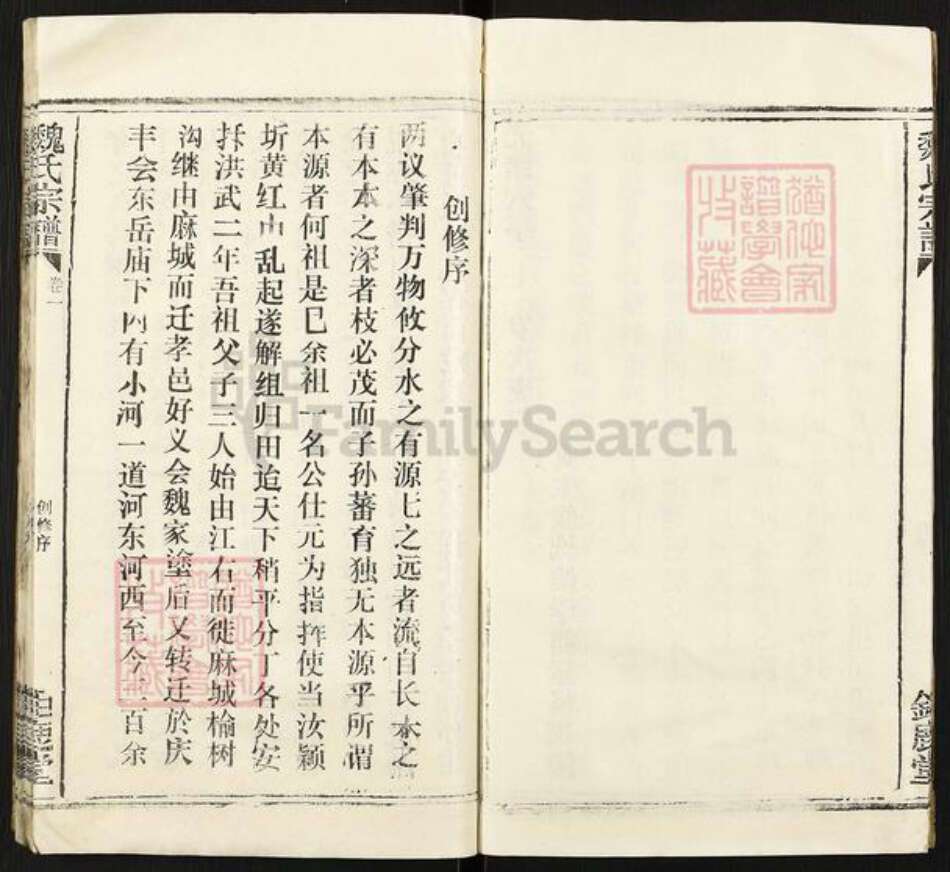 创修序
两议肇判万物攸分水之有源源之远者流自长木之
有本本之深者枝必茂而子孙蕃育独无本源乎所谓
本源者何祖是已余祖一名公仕元为指挥使当汝颖
圻黄红巾乱起遂解组归田迨天下稍平分丁各处安
抚洪武二年吾祖父子三人始由江右而徙麻城榆树
沟继由麻城而迁孝邑好义会魏家塗后又转迁於庆
丰会东岳庙下内有小河一道河东河西至今 百余
魏氏宗谱
卷一
创修序
魏氏宗譜
鉅鹿堂
猶他家
譜學會
收藏
猶他家
譜學會
收藏
FamilySearch